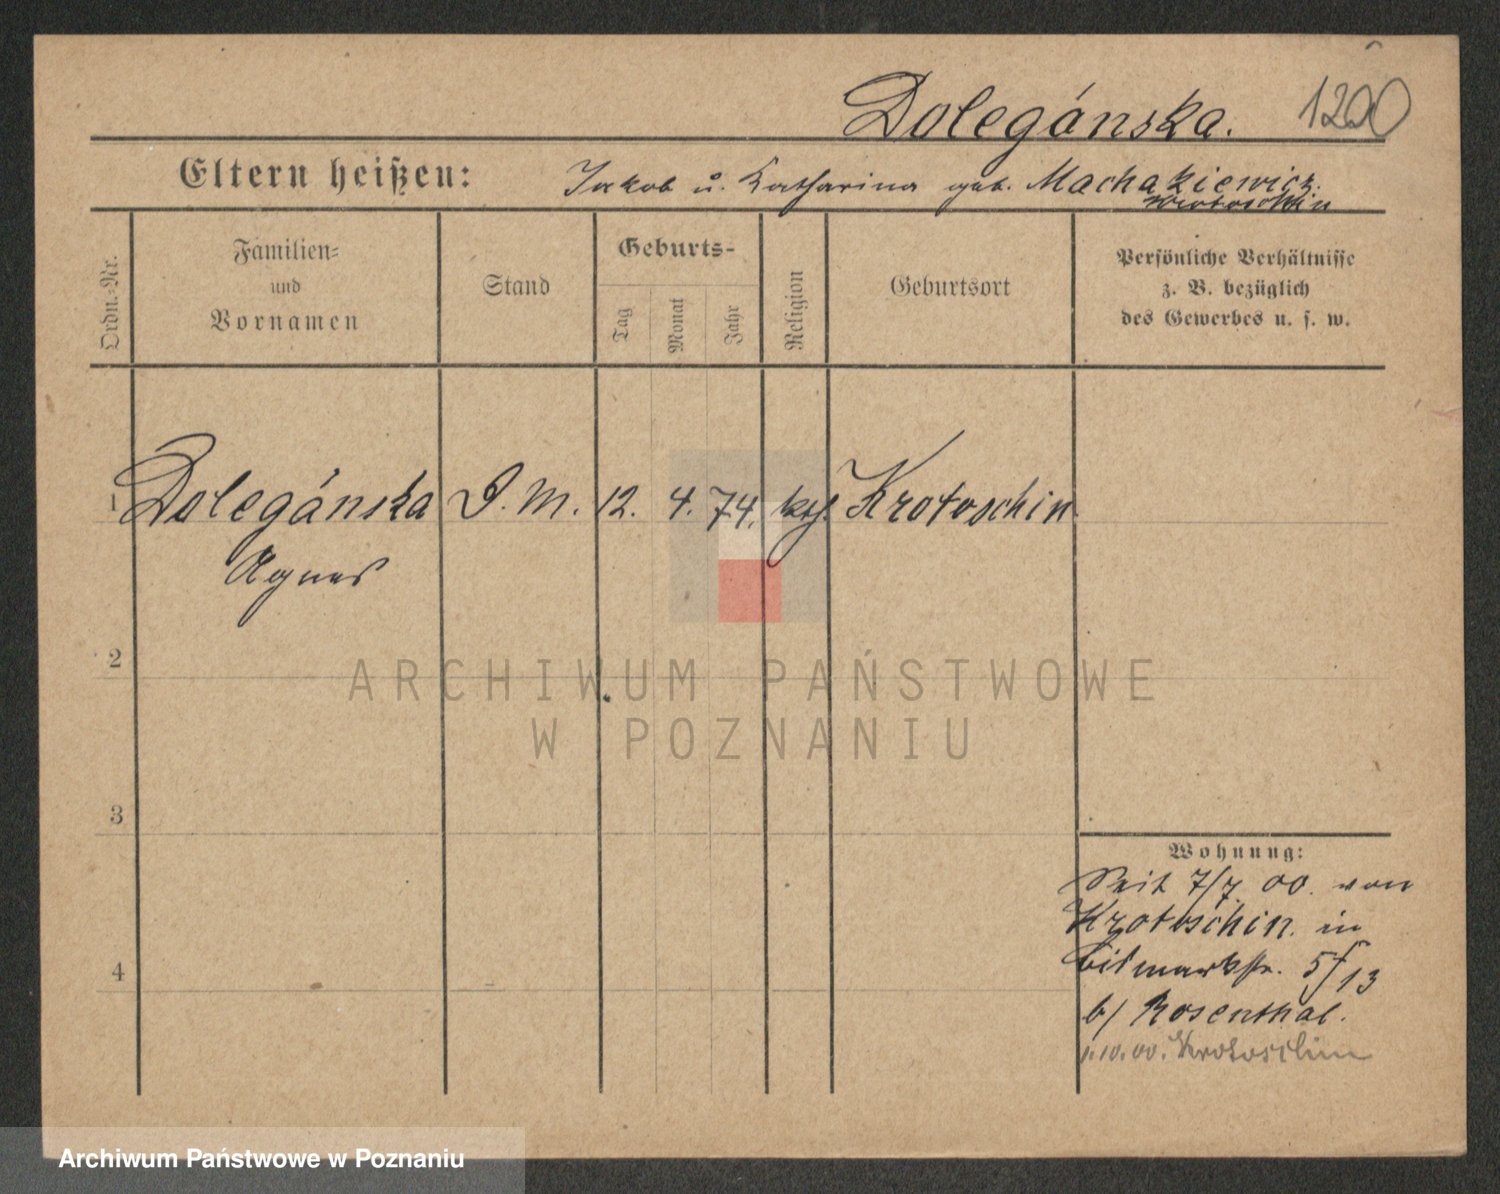 Dolegánska. 1200
Eltern heißen: Jakob u. Katharina geb. Machakiewicz.
Krotoschin
Ordn.-Nr.
Familien-
und
Vornamen
Stand
Geburts-
Tag
Monat
Jahr
Religion
Geburtsort
Persönliche Verhältnisse
z. B. bezüglich
des Gewerbes u. s. w.
1 Dolegánska D. M. 12. 4. 74. kth. Krotoschin
Agnes
2
ARCHIWUM PAŃSTWOWE
W POZNANIU
3
4
Wohnung:
Seit 7/7. 00. von
Krotoschin. in
Bismarkstr. 5/13
b/ Rosenthal.
1.10.00. Krotoschin
Archiwum Państwowe w Poznaniu